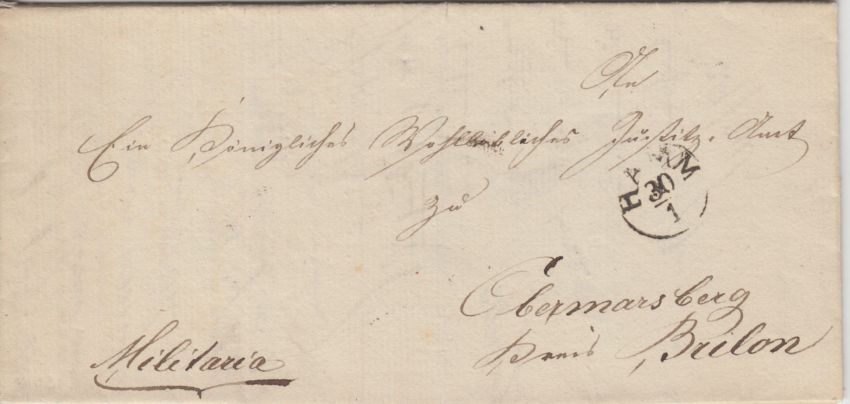 An
Ein Königliches Wohllöbliches Justiz-Amt
zu
HAMM
30/1
Obermarsberg
Kreis Brilon
Militaria